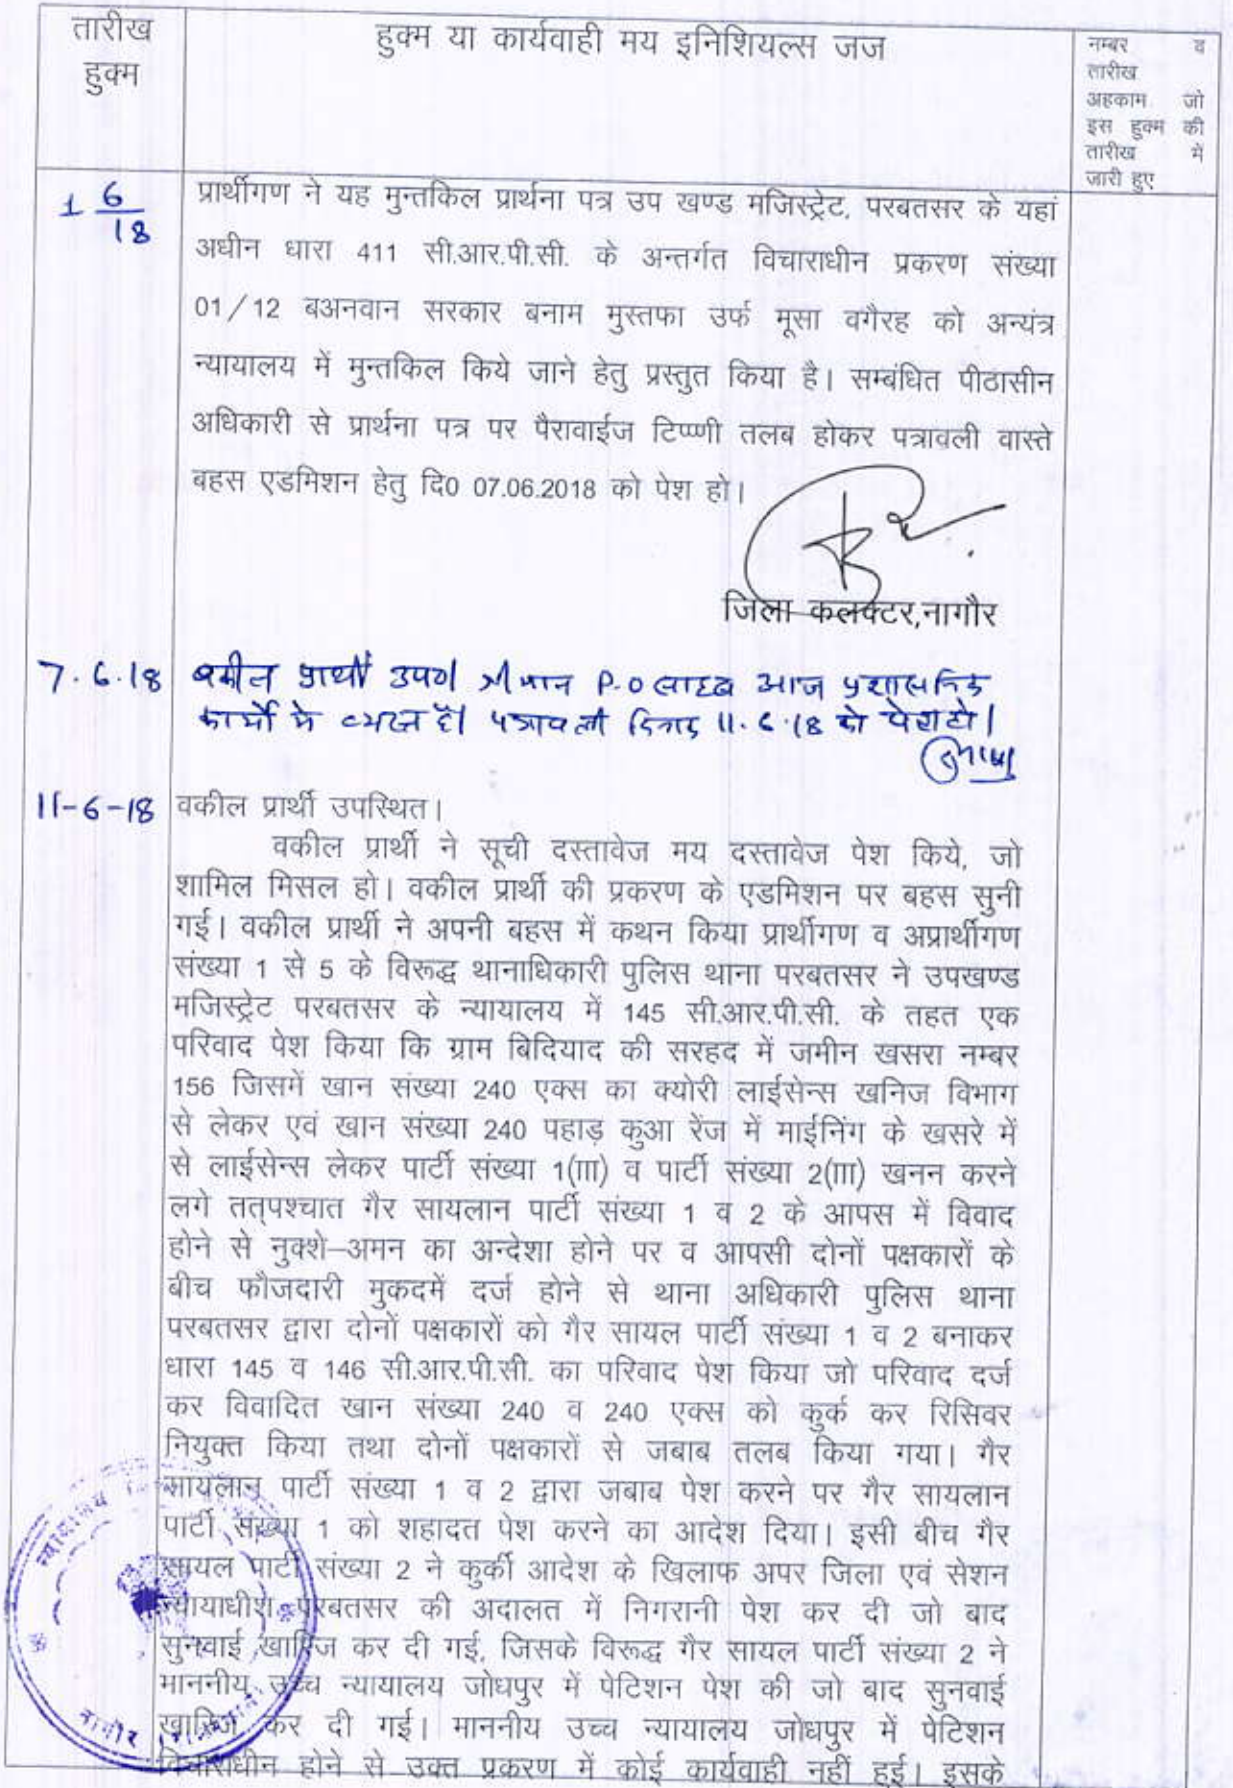 तारीख
हुक्म
हुक्म या कार्यवाही मय इनिशियल्स जज
नम्बर व
तारीख
अहकाम जो
इस हुक्म की
तारीख में
जारी हुए
1 6/18
प्रार्थीगण ने यह मुन्तकिल प्रार्थना पत्र उप खण्ड मजिस्ट्रेट, परबतसर के यहां
अधीन धारा 411 सी.आर.पी.सी. के अन्तर्गत विचाराधीन प्रकरण संख्या
01/12 बअनवान सरकार बनाम मुस्तफा उर्फ मूसा वगैरह को अन्यंत्र
न्यायालय में मुन्तकिल किये जाने हेतु प्रस्तुत किया है। सम्बंधित पीठासीन
अधिकारी से प्रार्थना पत्र पर पैरावाईज टिप्पणी तलब होकर पत्रावली वास्ते
बहस एडमिशन हेतु दि0 07.06.2018 को पेश हो।
जिला कलक्टर,नागौर
7.6.18 वकील प्रार्थी उप0। श्रीमान P.O साहब आज प्रशासनिक
कार्यो मे व्यस्त है। पत्रावली दिनांक 11.6.18 को पेश हो।
11-6-18 वकील प्रार्थी उपस्थित।
वकील प्रार्थी ने सूची दस्तावेज मय दस्तावेज पेश किये, जो
शामिल मिसल हो। वकील प्रार्थी की प्रकरण के एडमिशन पर बहस सुनी
गई। वकील प्रार्थी ने अपनी बहस में कथन किया प्रार्थीगण व अप्रार्थीगण
संख्या 1 से 5 के विरूद्ध थानाधिकारी पुलिस थाना परबतसर ने उपखण्ड
मजिस्ट्रेट परबतसर के न्यायालय में 145 सी.आर.पी.सी. के तहत एक
परिवाद पेश किया कि ग्राम बिदियाद की सरहद में जमीन खसरा नम्बर
156 जिसमें खान संख्या 240 एक्स का क्योरी लाईसेन्स खनिज विभाग
से लेकर एवं खान संख्या 240 पहाड़ कुआ रेंज में माईनिंग के खसरे में
से लाईसेन्स लेकर पार्टी संख्या 1(III) व पार्टी संख्या 2(III) खनन करने
लगे तत्पश्चात गैर सायलान पार्टी संख्या 1 व 2 के आपस में विवाद
होने से नुक्शे–अमन का अन्देशा होने पर व आपसी दोनों पक्षकारों के
बीच फौजदारी मुकदमें दर्ज होने से थाना अधिकारी पुलिस थाना
परबतसर द्वारा दोनों पक्षकारों को गैर सायल पार्टी संख्या 1 व 2 बनाकर
धारा 145 व 146 सी.आर.पी.सी. का परिवाद पेश किया जो परिवाद दर्ज
कर विवादित खान संख्या 240 व 240 एक्स को कुर्क कर रिसिवर
नियुक्त किया तथा दोनों पक्षकारों से जबाब तलब किया गया। गैर
सायलान पार्टी संख्या 1 व 2 द्वारा जबाब पेश करने पर गैर सायलान
पार्टी संख्या 1 को शहादत पेश करने का आदेश दिया। इसी बीच गैर
सायल पार्टी संख्या 2 ने कुर्की आदेश के खिलाफ अपर जिला एवं सेशन
न्यायाधीश परबतसर की अदालत में निगरानी पेश कर दी जो बाद
सुनवाई खारिज कर दी गई, जिसके विरूद्ध गैर सायल पार्टी संख्या 2 ने
माननीय उच्च न्यायालय जोधपुर में पेटिशन पेश की जो बाद सुनवाई
खारिज कर दी गई। माननीय उच्च न्यायालय जोधपुर में पेटिशन
विचाराधीन होने से उक्त प्रकरण में कोई कार्यवाही नहीं हुई। इसके